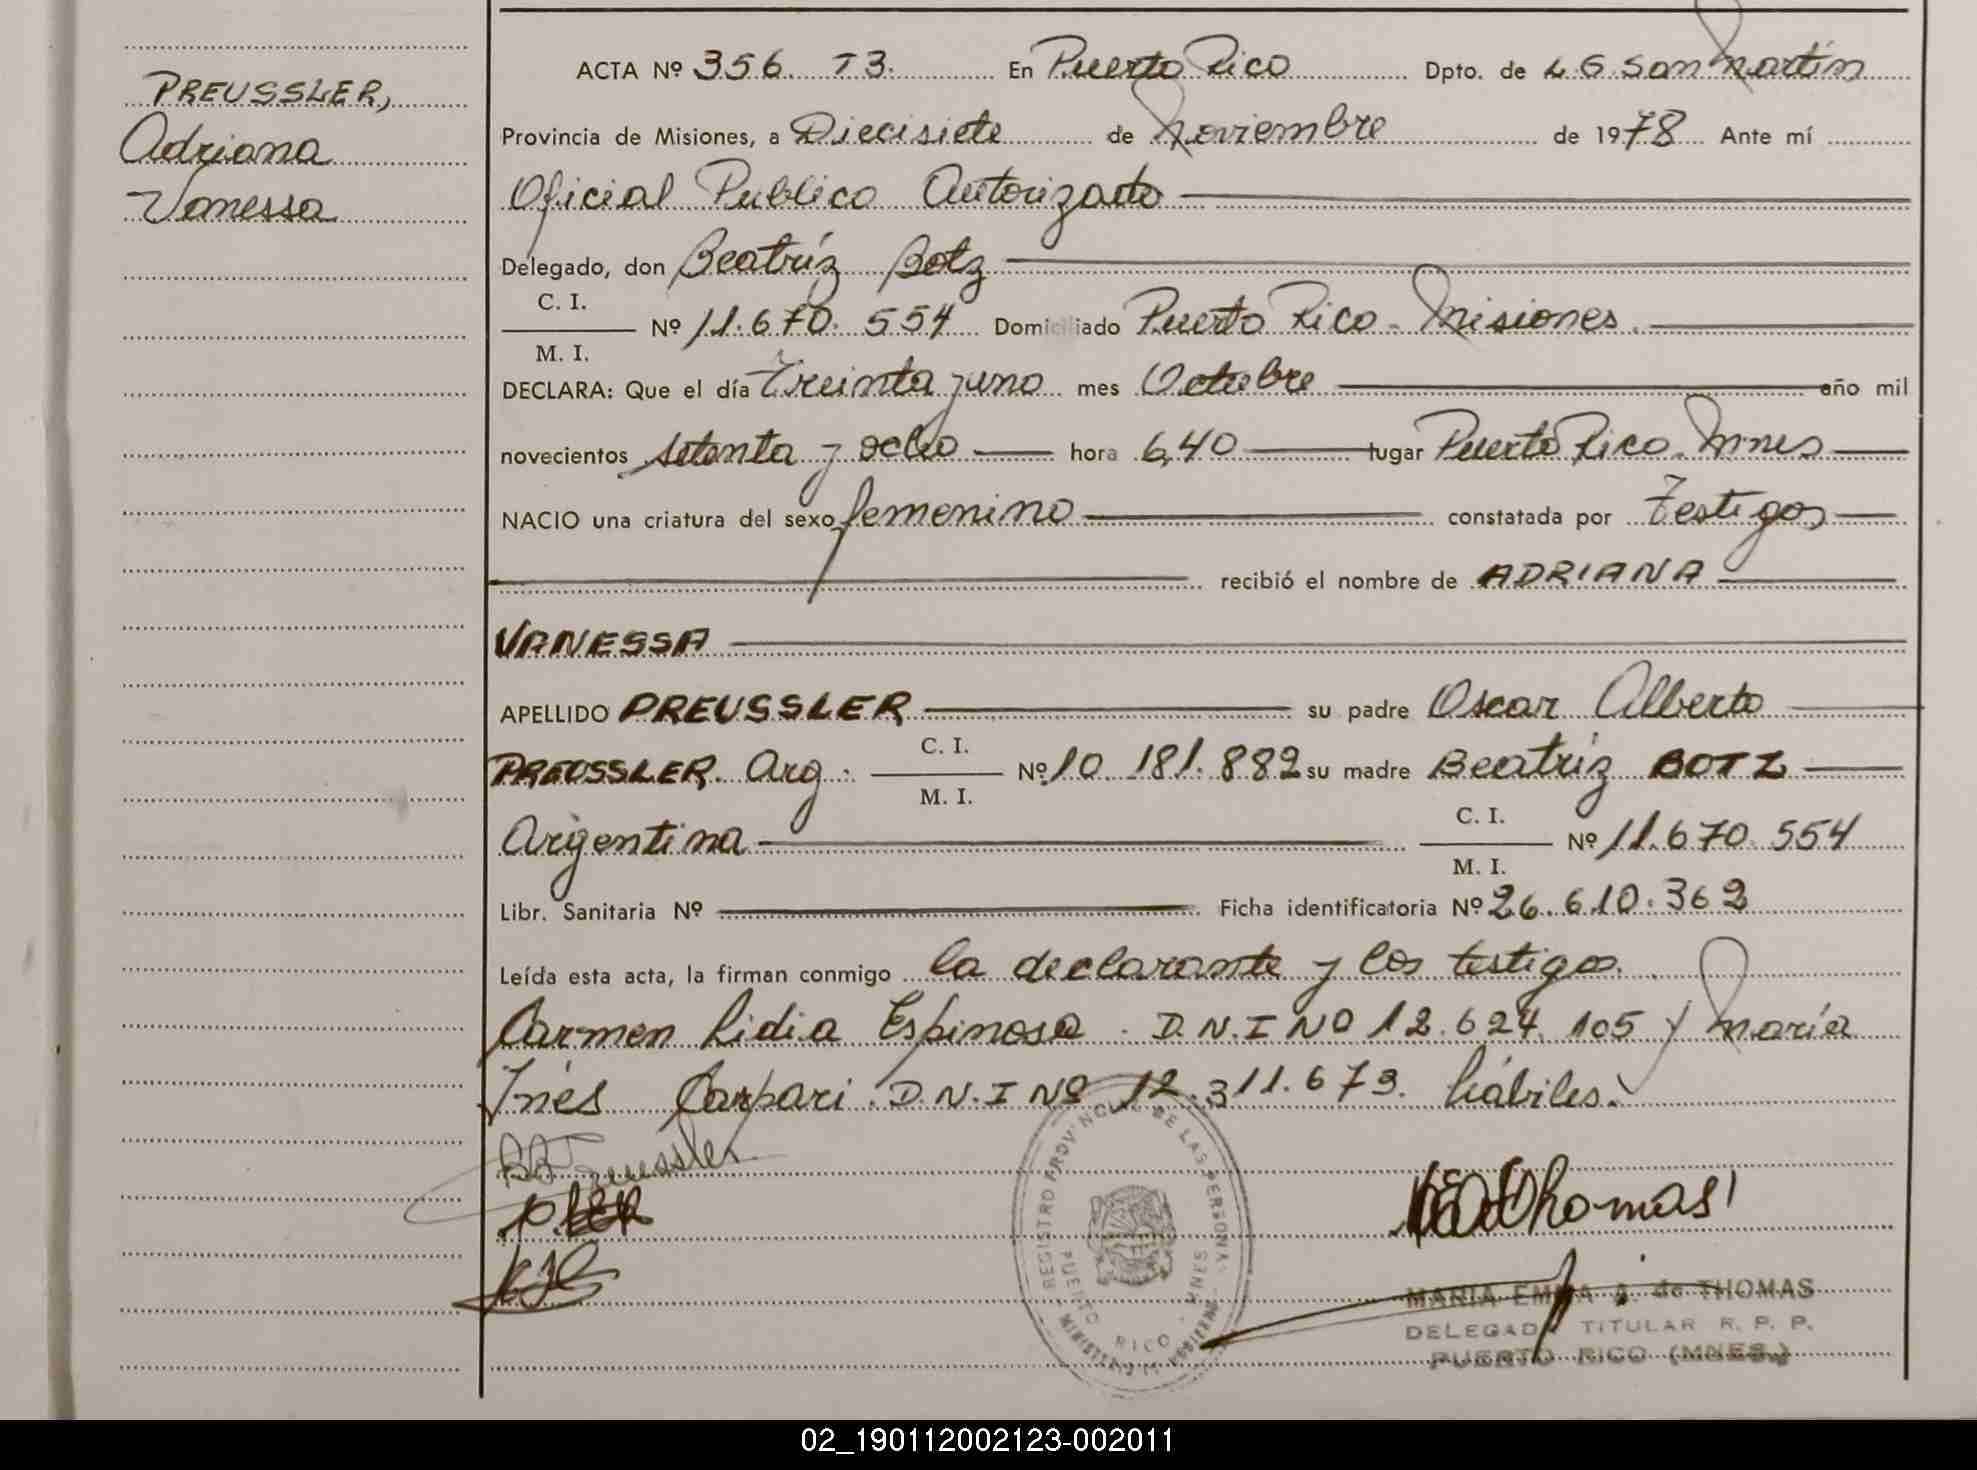 PREUSSLER,
Adriana
Vanessa
ACTA Nº 356. T3. En Puerto Rico Dpto. de L.G. San Martín
Provincia de Misiones, a Diecisiete de Noviembre de 1978 Ante mí
Oficial Publico Autorizado
Delegado, don Beatríz Botz
C. I.
M. I.
Nº 11.670.554 Domiciliado Puerto Rico - Misiones.
DECLARA: Que el día Treinta y uno mes Octubre año mil
novecientos setenta y ocho hora 6,40 lugar Puerto Rico. Mnes
NACIO una criatura del sexo femenino constatada por Testigos
recibió el nombre de ADRIANA
VANESSA
APELLIDO PREUSSLER su padre Oscar Alberto
PREUSSLER. Arg. C. I. M. I. Nº 10.181.882 su madre Beatríz BOTZ
Argentina C. I. M. I. Nº 11.670.554
Libr. Sanitaria Nº Ficha identificatoria Nº 26.610.362
Leída esta acta, la firman conmigo la declarante y los testigos.
Carmen Lidia Espinosa. D.N.I Nº 12.624.105 y María
Inés Carpari. D.N.I Nº 12.311.673. hábiles.
Preussler
Thomas
REGISTRO PROVINCIAL DE LAS PERSONAS
PUERTO RICO - MNES
MINISTERIO DE GOBIERNO
MARIA EMMA de THOMAS
DELEGADA TITULAR R. P. P.
PUERTO RICO (MNES.)
02_190112002123-002011